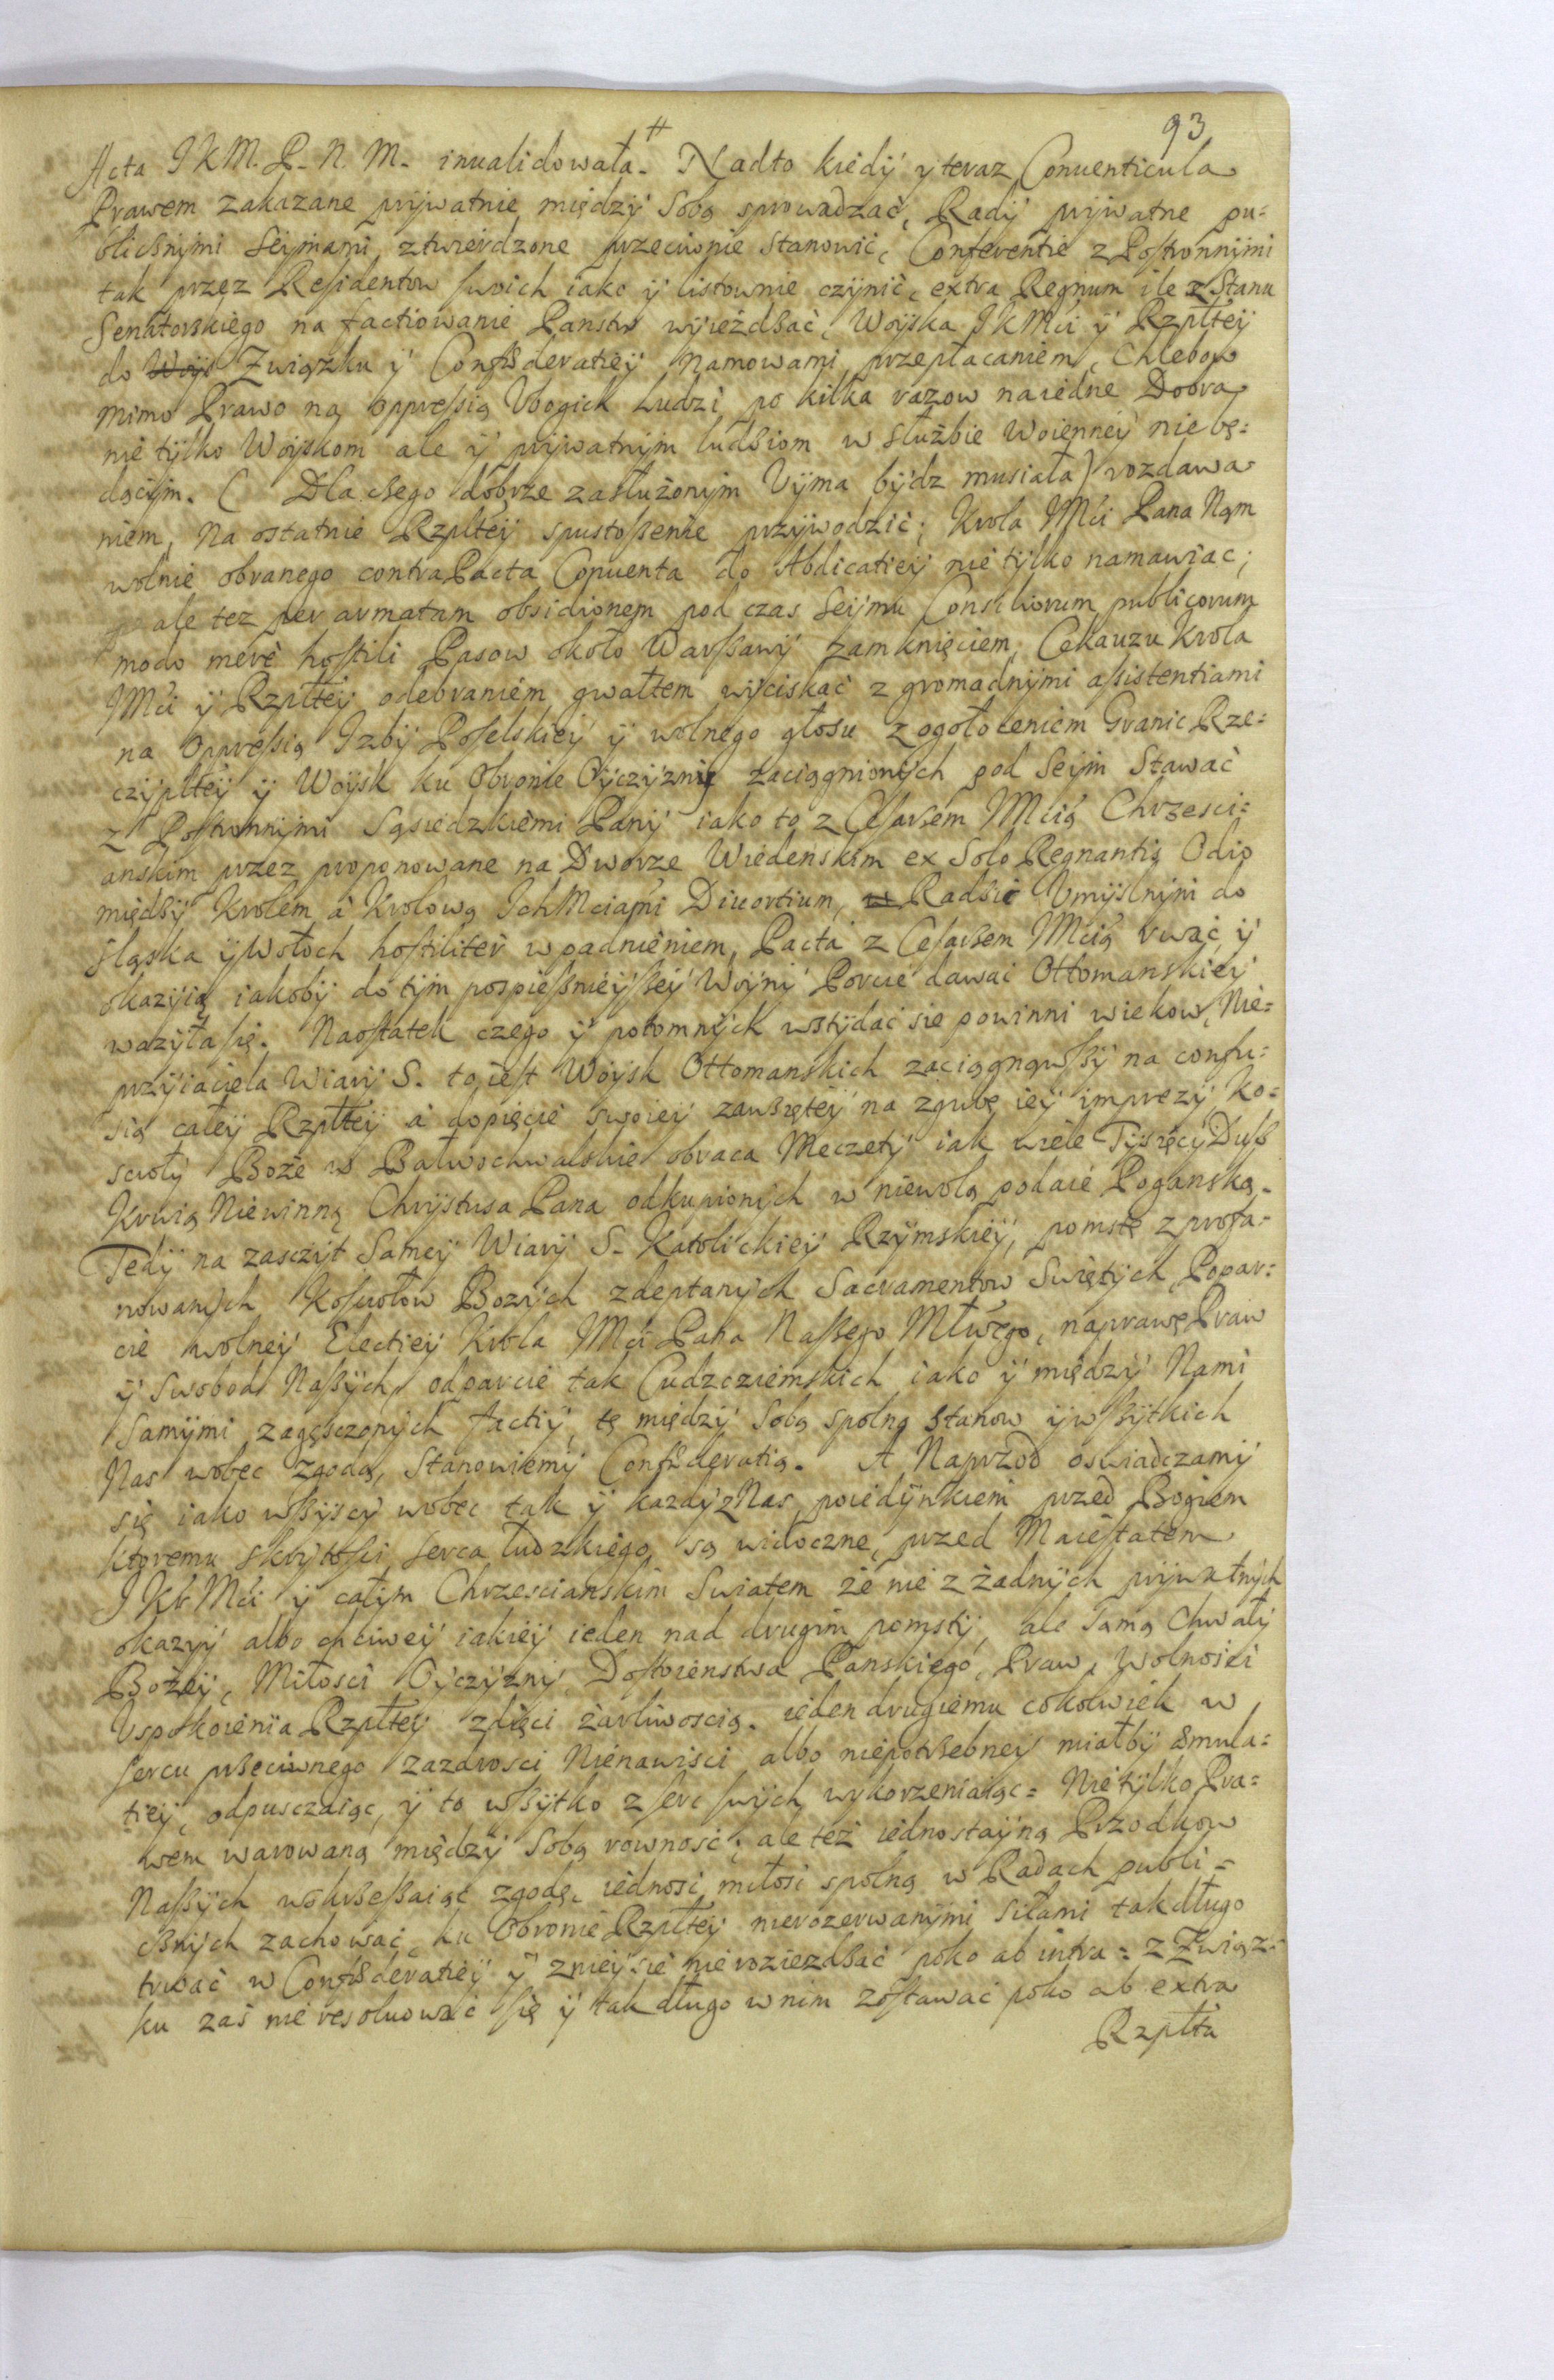 93
Acta JKM. P. N. M. inualidowała. # Nadto kiedÿ ÿ teraz Conuenticula
Prawem zakazane prÿwatnie międzÿ Sobą sprowadzać, Radÿ prÿwatne pu=
blicsnÿmi Seÿmami ztwierdzone przeciwnie Stanowić, Conferentie z Postronnÿmi
tak przez Residentow swoich iako ÿ listownie czÿnić, extra Regnum ile z Stanu
Senatorskiego na factiowanie Panstw wÿieżdsać, Woÿska JKMći ÿ Rzpłteÿ
do Związku ÿ Confæderatieÿ namowami, przepłacaniem, Chlebow
mimo Prawo na oppressią Vbogich Ludzi po kilka razow na iedne Dobra
nie tÿlko Woÿskom ale ÿ prÿwatnÿm ludsiom w Służbie Woienneÿ nie bę=
dącÿm. (Dla csego dobrze zasłużonÿm Vÿma bÿdz musiała) rozdawa
niem, na ostatnie Rzpłteÿ spustoßenie przÿwodzić; Krola Mći Pana Nam
wolnie obranego contra Pacta Conuenta do Abdicatieÿ nie tÿlko namawiac;
ale tez per armatam obsidionem pod czas Seÿmu Consiliorum publicorum
modo merè hostili Pasow około Warßawÿ zamknięciem, Cekauzu Krola
JMći ÿ Rzpłteÿ odebraniem gwałtem wÿciskać z gromadnÿmi assistentiami
na oppressią Izbÿ Poselskieÿ ÿ wolnego głosu z ogołoceniem Granic Rze=
czÿpłteÿ ÿ Woÿsk ku Obronie Oÿczÿznÿ zaciągnionÿch pod Seÿm Stawać
z Postronnÿmi Sąsiedzkiemi Panÿ iako to z Cesarsem JMćią Chrzesci=
anskim przez proponowane na Dworze Wiedeńskim ex Solo Regnantis Odio
międsÿ Krolem a Krolową Ich Mciami Diuortium, Radsie Vmÿslnÿm do
Sląska ÿ Włoch hostiliter wpadnieniem, Pacta z Cesarsem JMćią rwać ÿ
okazÿią iakobÿ do tÿm pospießnieÿßeÿ Woÿnÿ Porcie dawać Ottomanskieÿ
ważÿła się. Naostatek czego ÿ potomnÿch wstÿdać sie powinni wiekow, Nie=
przÿiaciela Wiarÿ S. to iest Woÿsk Ottomanskich zaciągnąwßÿ na confu=
sią całeÿ Rzpłteÿ a dopięcie swoieÿ zawsiętey na zgubę ieÿ imprezÿ Ko=
scioły Boże w Bałwochwalskie obraca Meczetÿ iak wiele Tÿsięcÿ Duß
Krwią Niewinną Chrÿstusa Pana odkupionÿch w niewolą podaie Poganską.
Tedÿ na zasczÿt Sameÿ Wiarÿ S. Katolickieÿ Rzÿmskieÿ, pomstę z profa=
nowanÿch Kosciołow Bozÿch zdeptanÿch Sacramentow Swiętÿch, Popar=
cie wolneÿ Electieÿ Krola JMći Pana Naßego Młwego, naprawę Praw
ÿ Swobod Naßÿch, odparcie tak Cudzoziemskich iako ÿ międzÿ Nami
Samÿmi zagęsczonÿch factiÿ, tę międzÿ Sobą spolną Stanow ÿ wßÿtkich
Nas wobec Zgodą, Stanowiemÿ Confæderatią. A Naprzod oswiadczamÿ
się iako wßÿscÿ wobec tak ÿ kazdÿ z Nas poiedÿnkiem przed Bogiem
ktoremu skrÿtosci serca ludzkiego są widoczne, przed Maiestatem
JKr Mći ÿ całÿm Chrzescianskim Swiatem że nie z żadnÿch prÿwatnÿch
okazÿÿ albo chciweÿ iakieÿ ieden nad drugim pomstÿ, ale Samą Chwałÿ
Bożeÿ, Miłosci Oÿczÿznÿ, Dostoienstwa Panskiego, Praw, Wolnosci
Vspokoienia Rzpłteÿ zdięci żarliwoscią. ieden drugiemu cokolwiek w
sercu prseciwnego zazdrosci Nienawisci albo niepotrsebneÿ miałbÿ æmula=
tieÿ, odpusczaiąc, ÿ to wßÿtko z serc swÿch wykorzeniaiąc = Nie tÿlko Pra=
wem warowaną międzÿ Sobą rowność; ale też iednostaÿną Przodkow
Naßÿch wskrseßaiąc zgodę, iednosi miłosi spolną w Radach publi=
csnÿch zachować, ku Obronie Rzpłteÿ nierozerwanÿmi Siłami tak długo
trwać w Confæderatieÿ ÿ znieÿ sie nie roziezdsać poko ab intra = z Związ=
ku zaś nie resoluować się ÿ tak długo w nim zostawać poko ab extra
Rzpłta